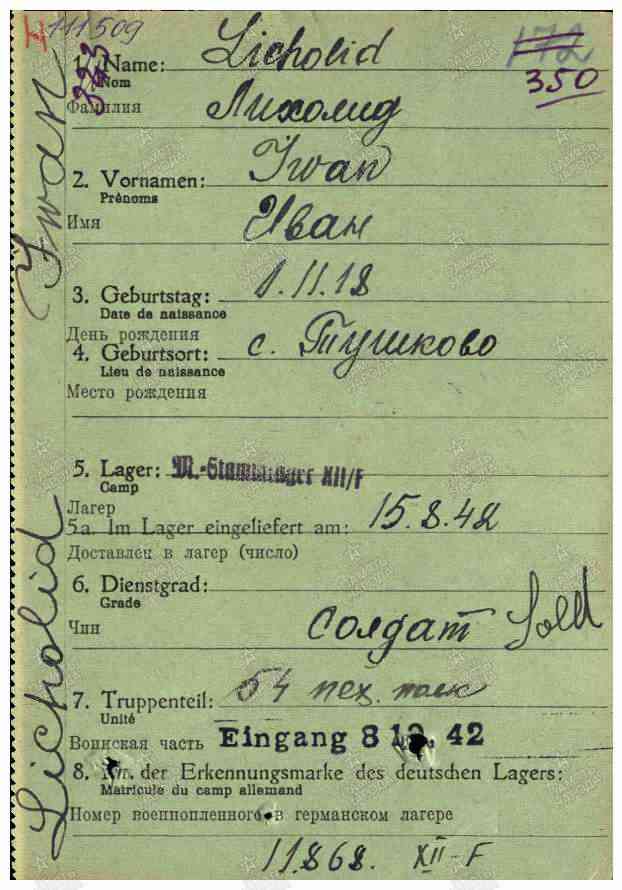 111509
323
Licholid
172
350
1. Name:
Nom
Фамилия
Лихолид
Iwan
2. Vornamen:
Prénoms
Имя
Иван
3. Geburtstag: 1.11.18
Date de naissance
День рождения
4. Geburtsort: с. Тушково
Lieu de naissance
Место рождения
5. Lager: M.-Stammlager XII/F
Camp
Лагер
5a. Im Lager eingeliefert am: 15.8.42
Доставлен в лагер (число)
6. Dienstgrad:
Grade
Чин
солдат Sold
7. Truppenteil: 54 пех. полк
Unité
Воинская часть Eingang 8 42
8. Nr. der Erkennungsmarke des deutschen Lagers:
Matricule du camp allemand
Номер военнопленного в германском лагере
11868. XII-F
Licholid Iwan